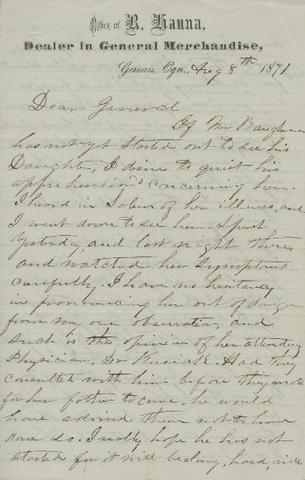 Office of R. Hanna,
Dealer in General Merchandise,
Gervais, Ogn., Aug 8th 1871
Dear General
If Mr Baughman
has not yet started out to see his
Daughter, I desire to quiet his
apprehensions concerning her.
I heard in Salem of her illness, and
I went down to see her. I spent
yesterday, and last night there,
and watched her symptoms
carefully. I have no hesitancy
in pronouncing her out of danger
from my own observation, and
such is the opinion of her attending
Physician, Dr. Had they
consulted with him before they wrote
for her father to come, he would
have advised them not to have
done so. I really hope he has not
started for it will be a long, hard, ride